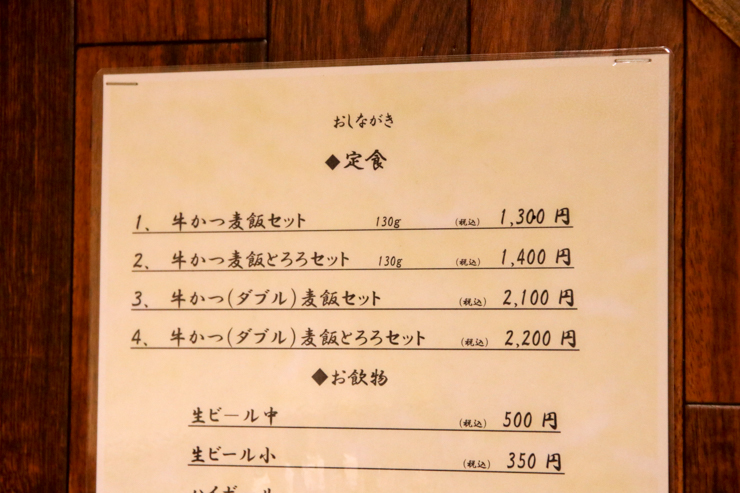 おしながき
◆定食
1、 牛かつ麦飯セット 130g (税込) 1,300 円
2、 牛かつ麦飯とろろセット 130g (税込) 1,400 円
3、 牛かつ(ダブル)麦飯セット (税込) 2,100 円
4、 牛かつ(ダブル)麦飯とろろセット (税込) 2,200 円
◆お飲物
生ビール中 (税込) 500 円
生ビール小 (税込) 350 円
ハイボール